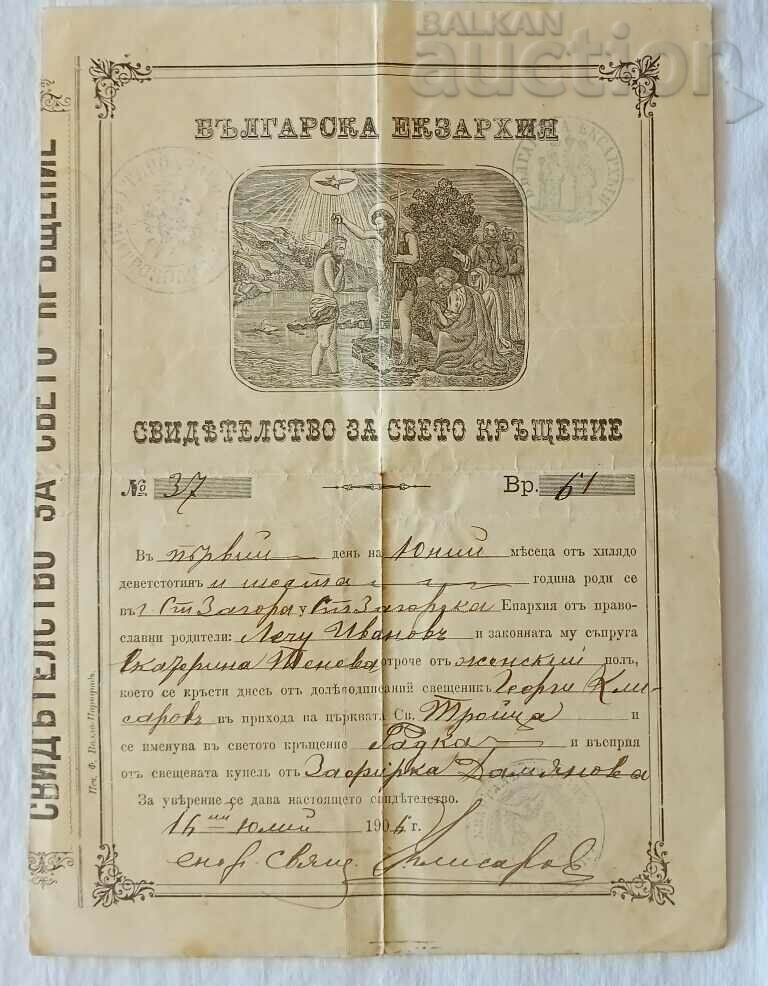 BALKAN
auction
БЪЛГАРСКА ЕКЗАРХИЯ
БЪЛГАРСКА ЕКСАРХИЯ
СВИДѢТЕЛСТВО ЗА СВЕТО КРЪЩЕНИЕ
№ 37 Вр. 61
Въ първий день на Юний мѣсеца отъ хилядо
деветстотинъ и шеста година роди се
въ г Ст. Загора у Ст. Загорска Епархия отъ право-
славни родители: Лечу Ивановъ и законната му съпруга
Екатерина Тенева отроче отъ женский полъ,
което се кръсти днесъ отъ долѣподписаний свещеникъ Георги Кли-
саровъ въ прихода на църквата Св. Тройца и
се именува въ светото кръщение Радка и въсприя
отъ свещената купель отъ Зафирка Дамянова
За увѣрение се дава настоящето свидѣтелство.
16 ий Юлий 1906 г.
енор. свящ. Клисаров
СВИДѢТЕЛСТВО ЗА СВЕТО КРЪЩЕНИЕ
Печ. Ф.